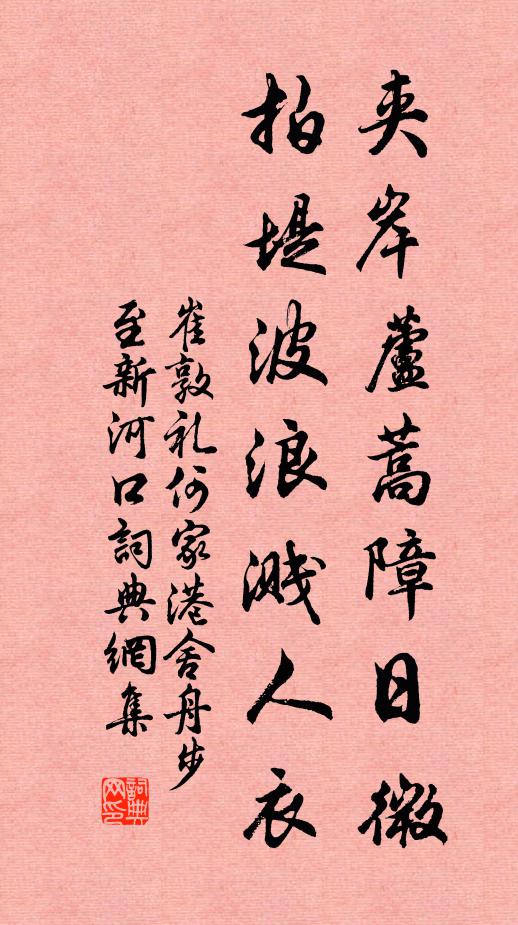 夹岸蘆蒿障日微
拍堤波浪溅人衣
崔敦礼何家港舍舟步
至新河口詞典網集
詞典
网印